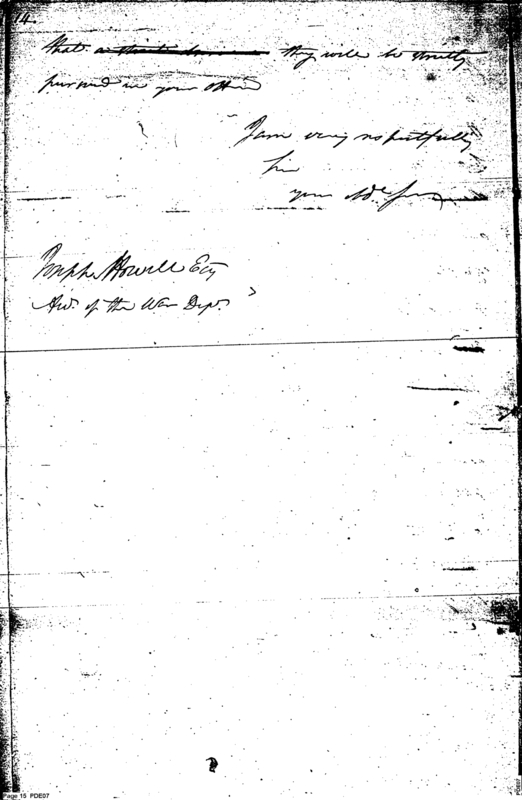 14
that they will be strictly
pursued in your office
I am very respectfully
Sir
your
Joseph Howell Esq
Acct. of the War Dept.
Page 15 PDE07